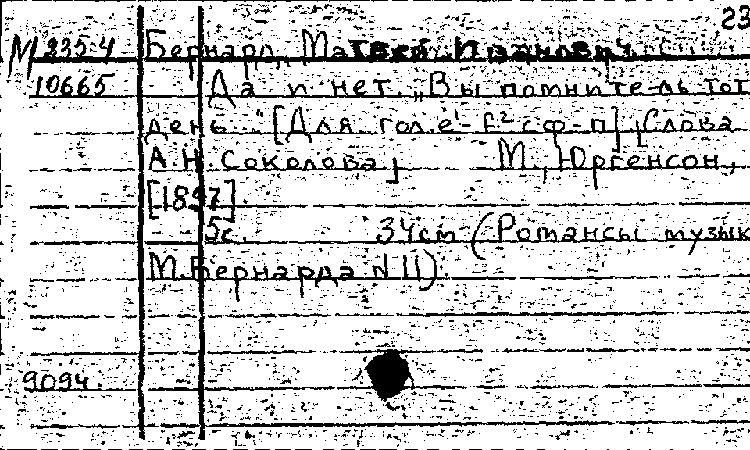 23
М 235-4 Бернард, Матвей Иванович
10665 Да и нет. „Вы помните ль тот
день..." [Для гол. e¹-f² с ф-п] [Слова
А.Н. Соколова] М., Юргенсон,
[1897]
5с. 34см (Романсы музык
М. Бернарда N 11)
9094.